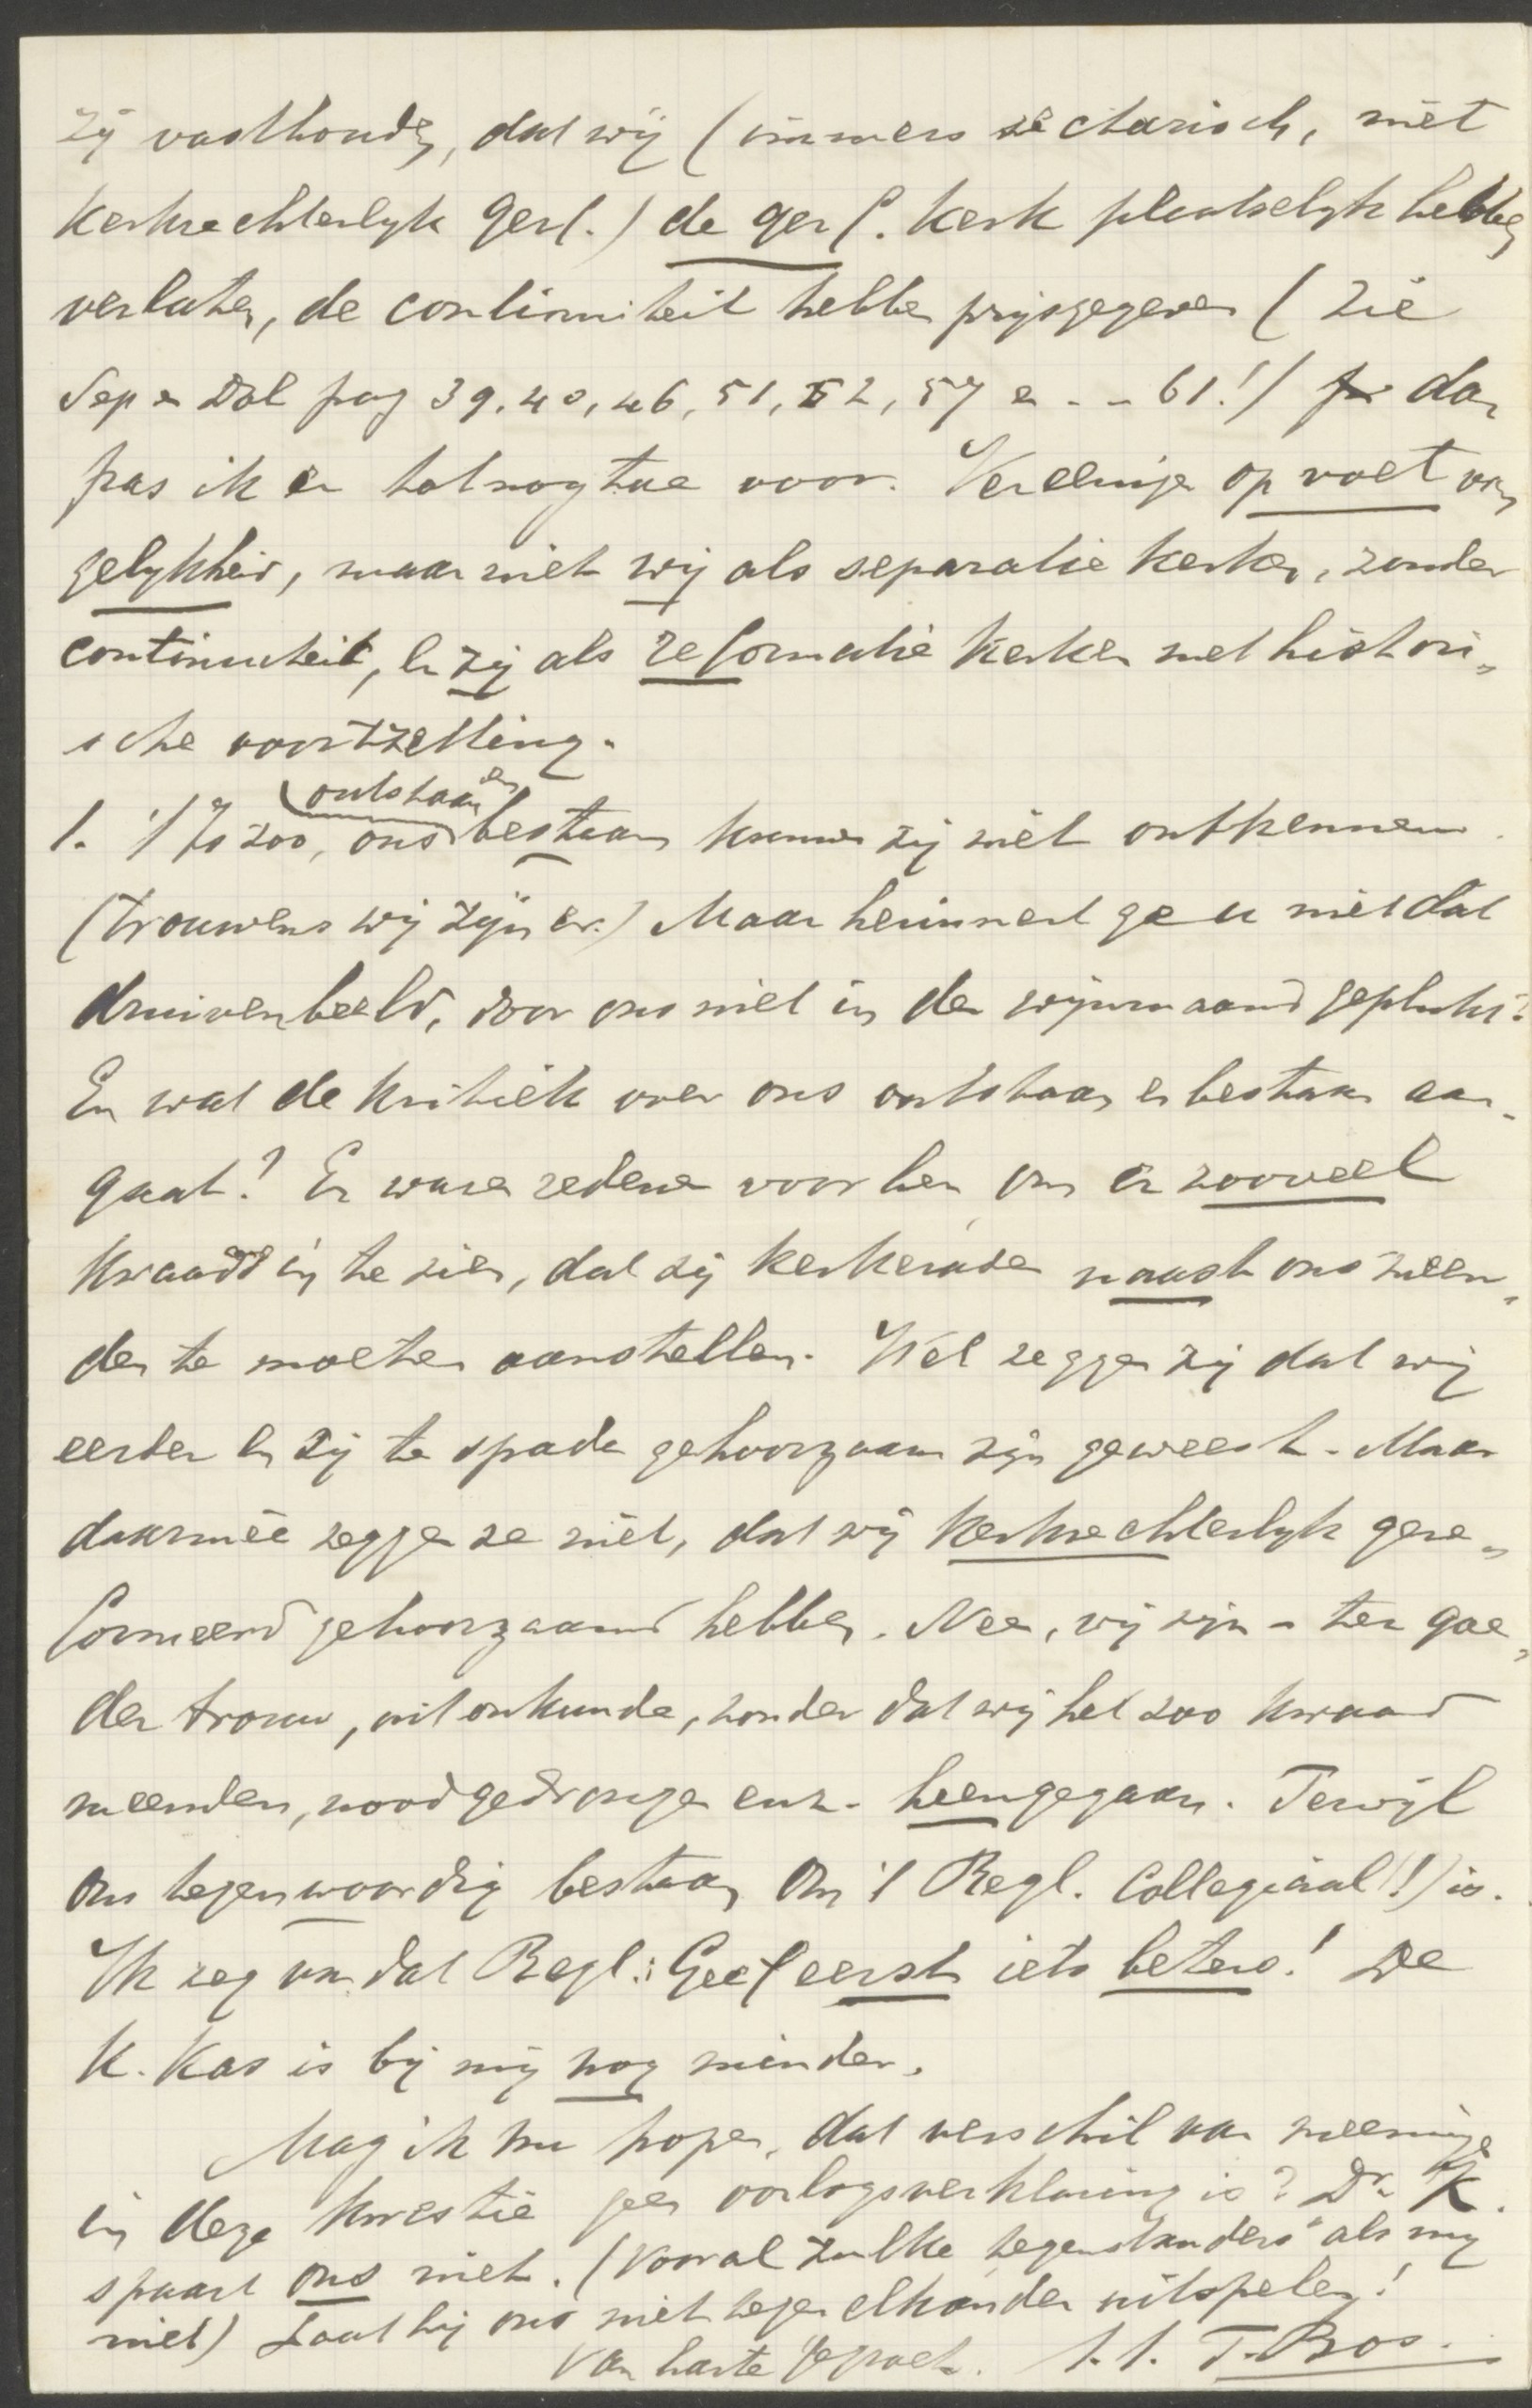 zij vasthouden, dat wij (immers sectarisch, niet
kerkrechterlijk geref.) de geref. kerk plaatselijk hebben
verlaten, de continuiteit hebben prijsgegeven (zie
Sep en Dol pag 39. 40, 46, 51, 52, 57 en - - 61!) dan
pas ik er totnogtoe voor. Vereenigen op voet van
gelijkheid, maar niet wij als separatie kerken, zonder
continuiteit, en zij als reformatie kerken met histori-
sche voortzetting.
1. 't Is zoo, ons ontstaan en bestaan kunnen zij niet ontkennen.
(trouwens wij zijn er.) Maar herinnert ge u niet dat
druivenbeeld, door ons niet in den wijnmaand geplukt?
En wat de kritiek over ons ontstaan en bestaan aan-
gaat? Er waren redenen voor hen om er zooveel
kwaad in te zien, dat zij kerkeraden naast ons meen-
den te moeten aanstellen. Wel zeggen zij dat wij
eerder en zij te spade gehoorzaam zijn geweest. Maar
daarmêe zeggen ze niet, dat wij kerkrechterlijk gere-
formeerd gehoorzaamd hebben. Nee, wij zijn - ter goe-
der trouw, uit onkunde, zonder dat wij het zoo kwaad
meenden, noodgedrongen enz. heengegaan. Terwijl
ons tegenwoordig bestaan om 't Regl. Collegiaal (!) is.
Ik zeg van dat Regl.: Geef eerst iets beters! De
K. Kas is bij mij nog minder.
Mag ik nu hopen, dat verschil van meeningen
in deze kwestie geen oorlogsverklaring is? Dr. K.
spaart ons niet. (Vooral zulke tegenstanders als mij
niet) Laat hij ons niet tegen elkander uitspelen!
Van harte gegroet. t.t. T. Bos.